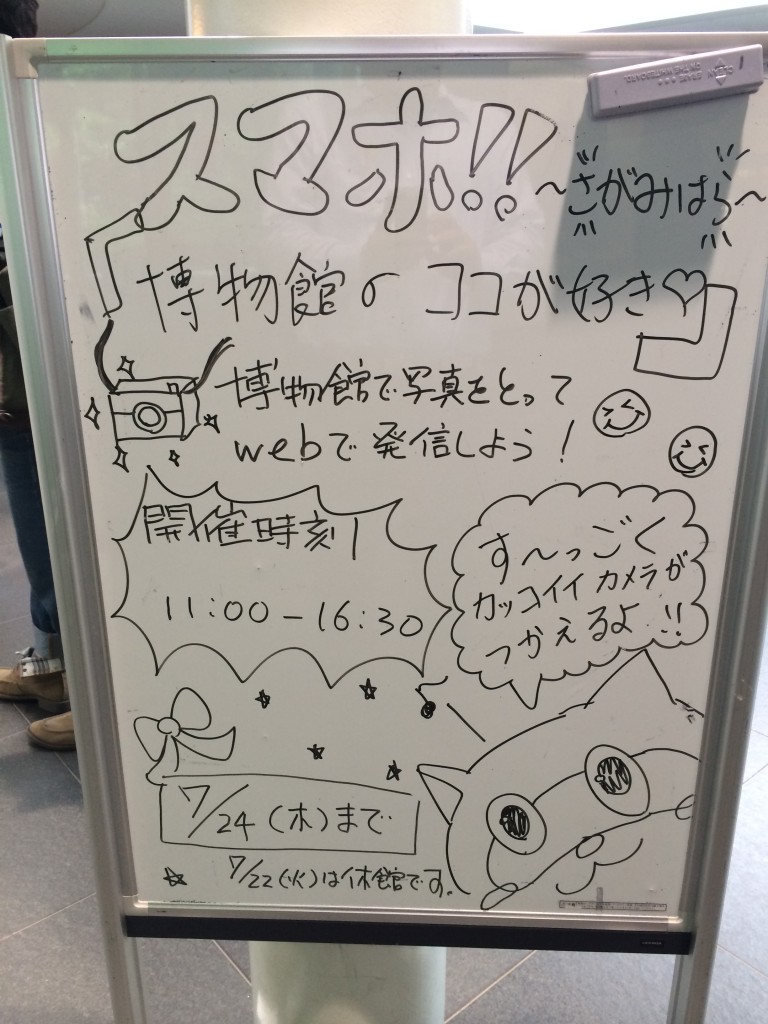 スマホ!!
～さがみはら～
「博物館の ココが好き♡」
博物館で写真をとって
webで発信しよう！
開催時刻
11:00-16:30
す～っごく
カッコイイ カメラが
つかえるよ!!
7/24(木)まで
7/22(火)は休館です。